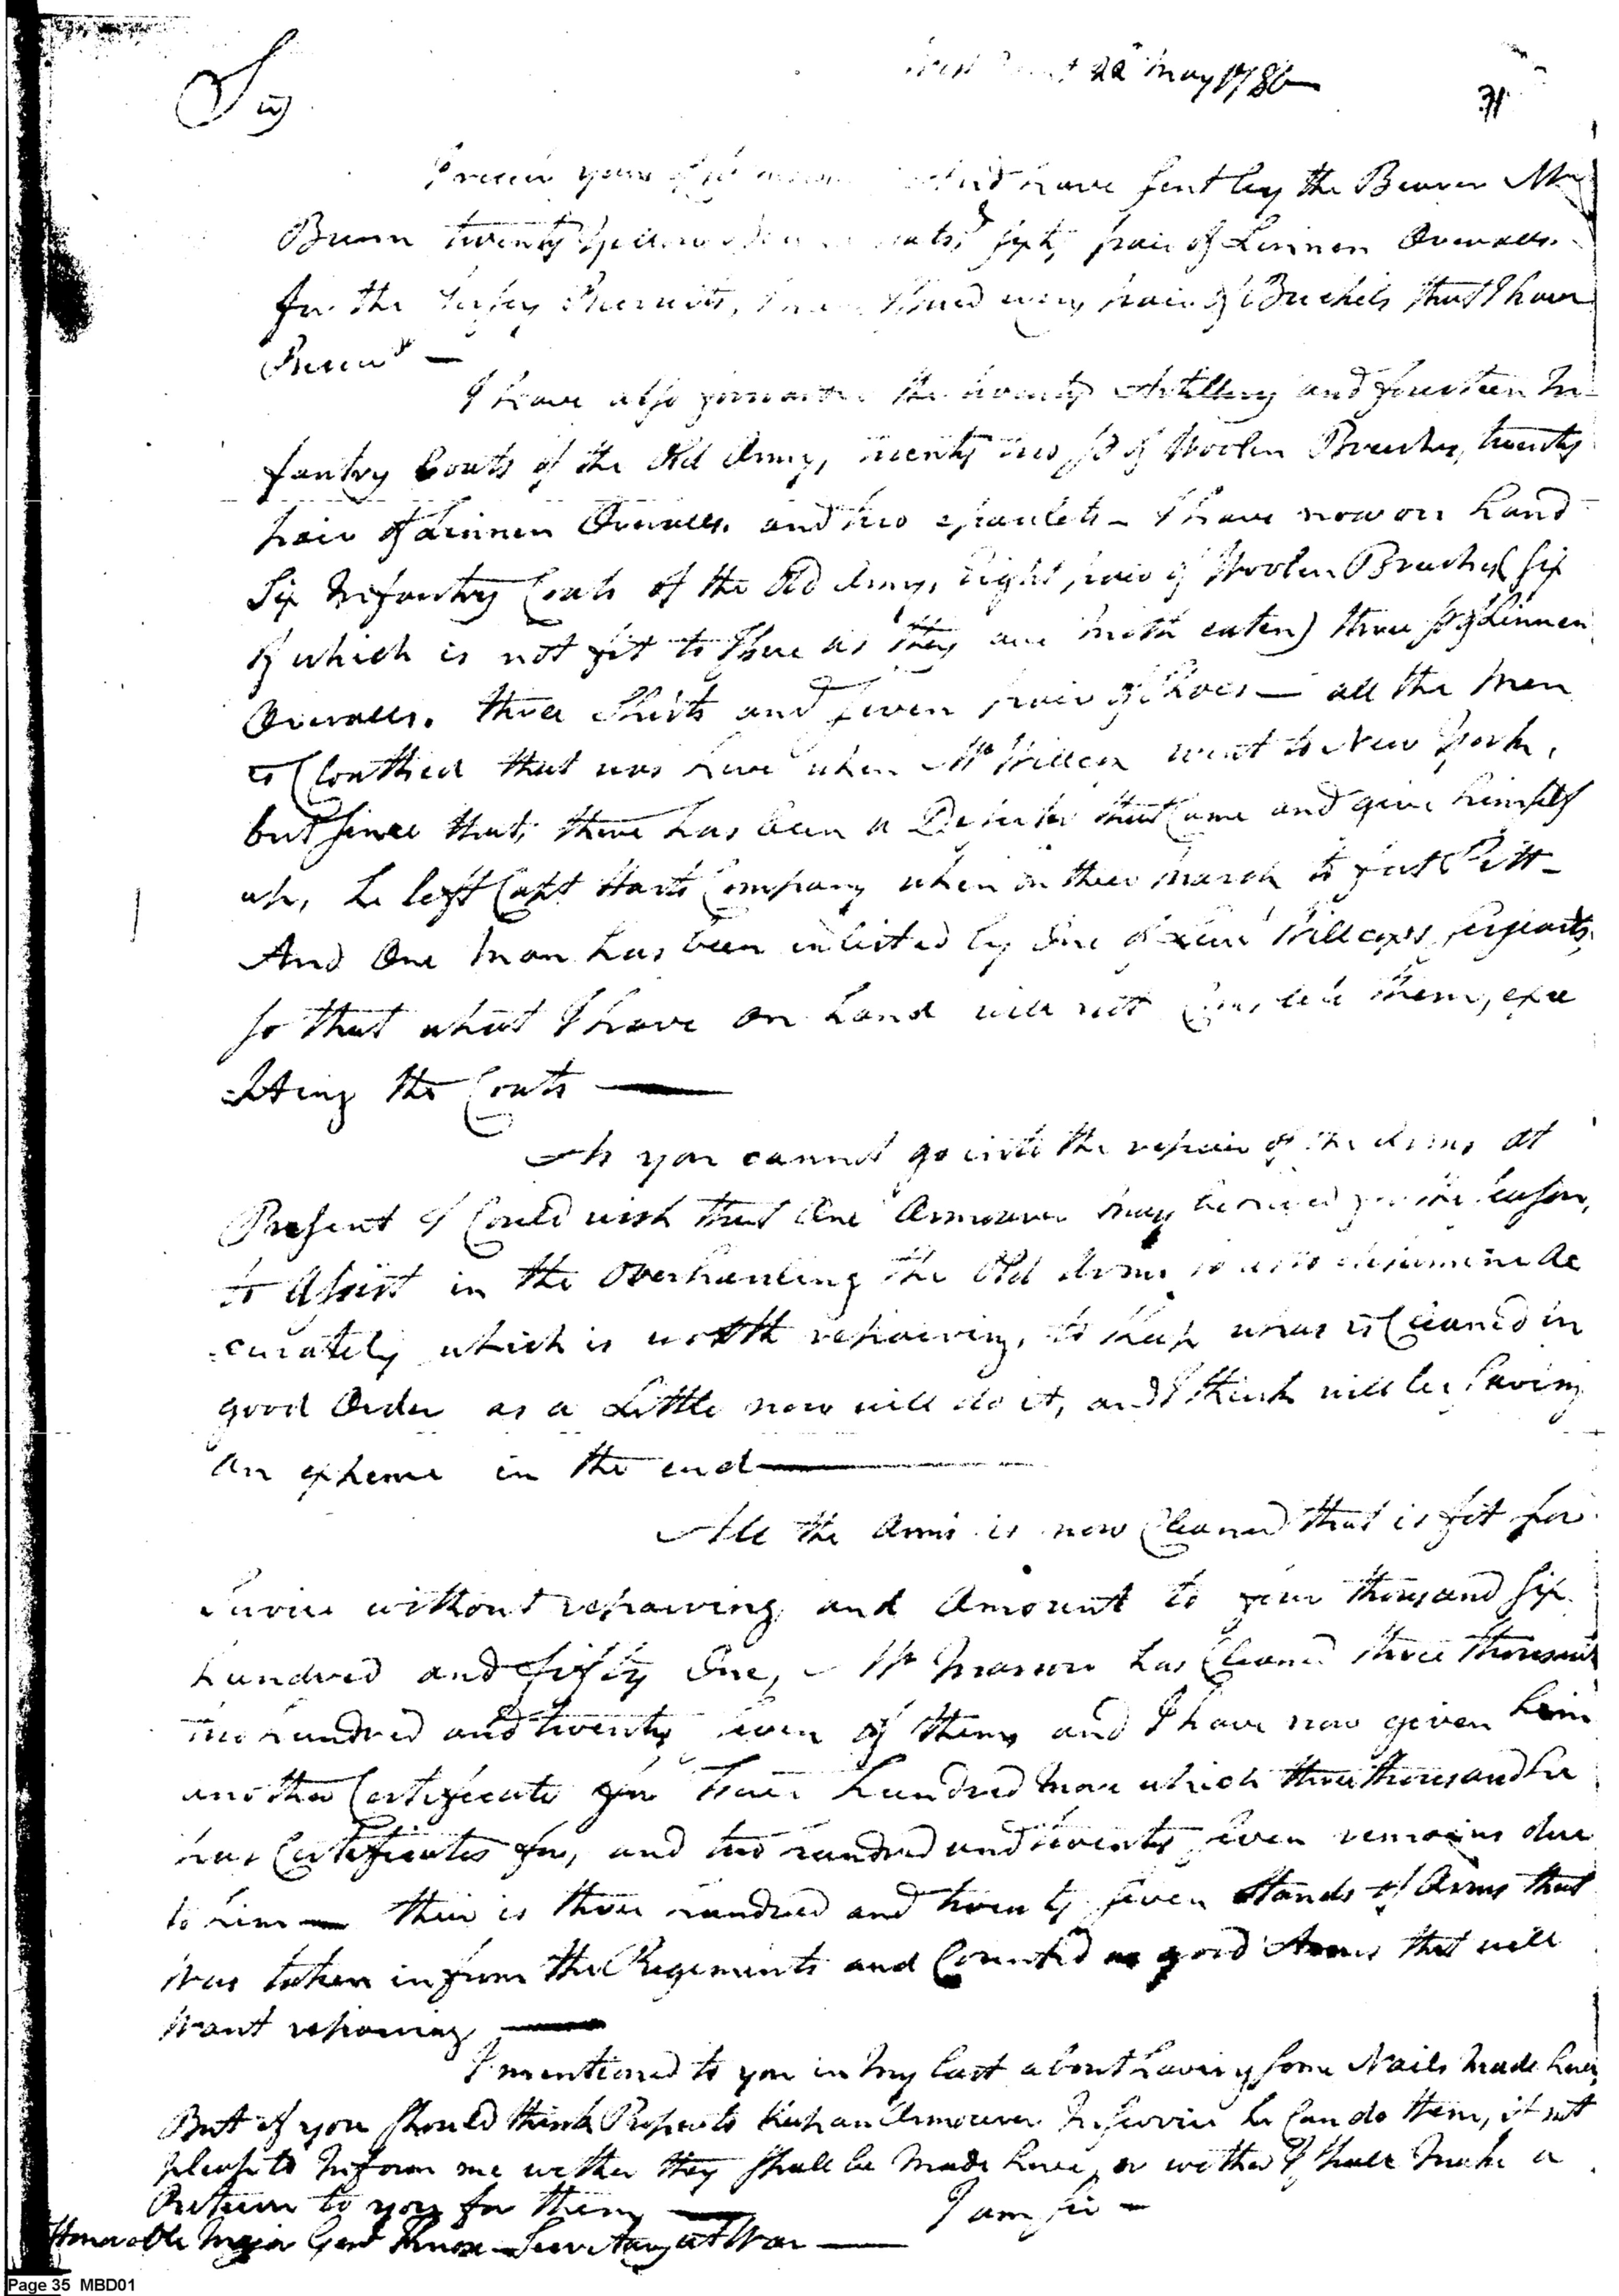 22d May 1786
31
Sir
yours and have sent by the Bearer Mr
Bunn twenty pair of Linnen Overalls
for the Jersey Recruits, every pair of Buckels that I have
Receivd —
I have also the twenty Artillery and fourteen In-
fantry Coats of the Old Army, twenty two pr of Woolen Breeches, twenty
pair of Linnen Overalls, and two epaulets — I have now on hand
Six Infantry Coats of the Old Army, Eight pair of Woolen Breeches (six
of which is not fit to Issue as they are Moth eaten) three pr of Linnen
Overalls, three Shirts and seven pair of Shoes — all the Men
is Cloathed that was here when Mr Willcox went to New York,
but since that, there has been a Deserter that Came and give himself
up, he left Capt Harts Company when on their march to fort Pitt —
And One Man has been inlisted by One of Lieut Willcoxs serjeants,
so that what I have on hand will not Compleat them, exce
-pting the Coats —
As you cannot go into the repair of the Arms at
Present I Could wish that One Armourer may be for the season,
to Assist in the Overhauling the Old Arms so as to determine Ac
-curately which is worth repairing, to keep what is Cleaned in
good Order as a Little now will do it, and I think will be saving
An expence in the end —
All the Arms is now Cleaned that is fit for
Service without repairing and Amount to four thousand six
hundred and fifty One, Mr has Cleaned three thousand
two hundred and twenty seven of them and I have now given him
another Certificate for hundred more which three thousand he
has Certificates for, and two hundred and twenty seven remains due
to him — their is three hundred and twenty seven Stands of Arms that
Was taken in from the Regements and Counted as good Arms that will
Want repairing —
I mentioned to you in my last about having some Nails made here,
But if you should think Proper to keep an Armourer In service he Can do them, if not
please to Inform me wether they shall be Made here, or wether I shall Make a
Return to you for them — I am Sir —
Honorable Major Genl Knox Secretary at War —
Page 35 MBD01